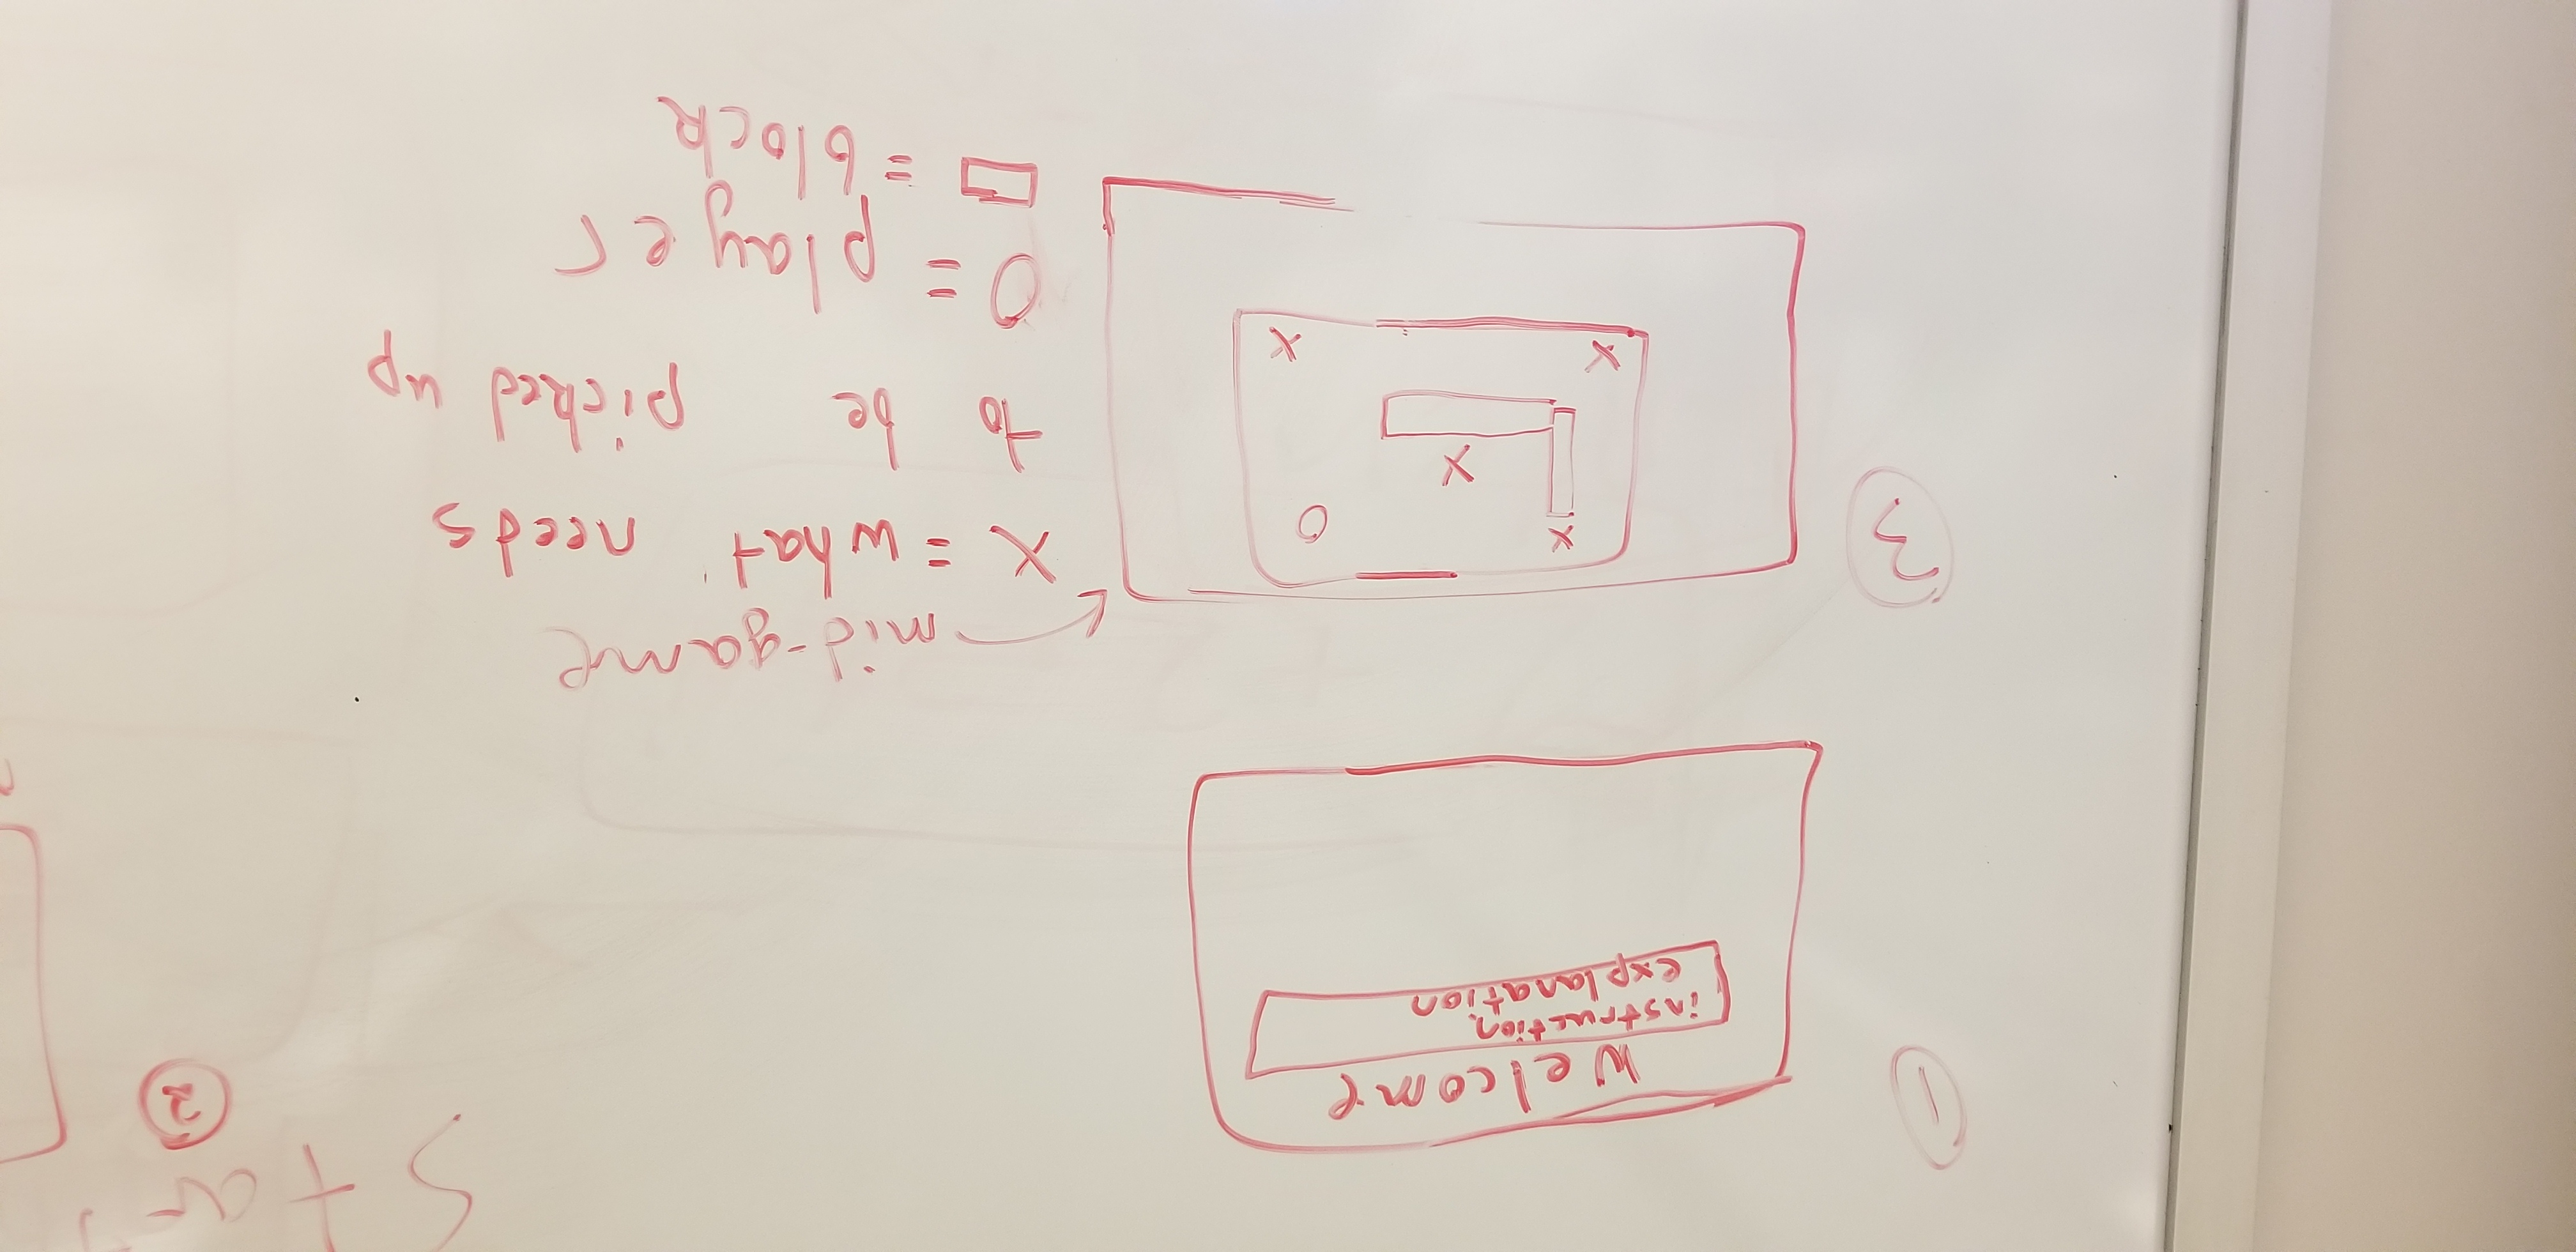 1
Welcome
instruction
explanation
Start
2
3
mid-game
X = what needs
to be picked up
O = player
▭ = block
X
O
X
X
X